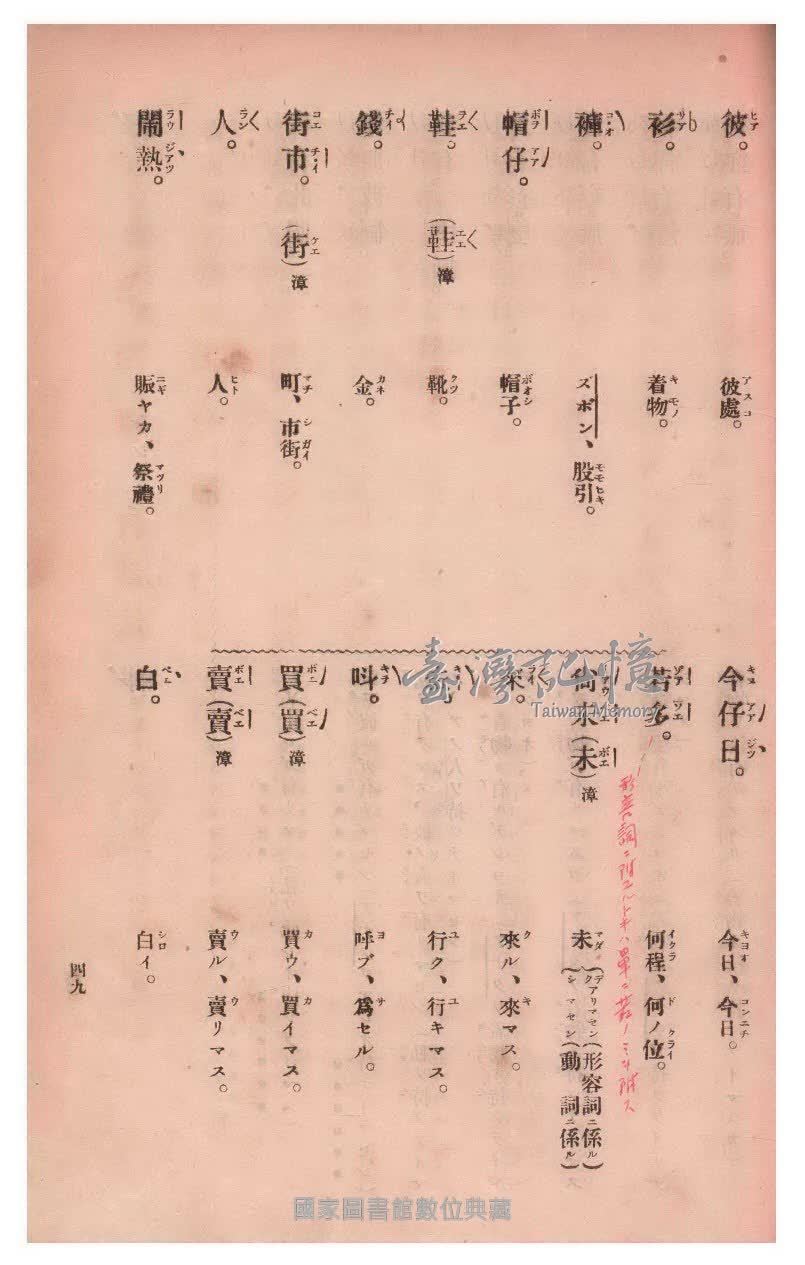 彼。 彼處。
衫。 着物。
褲。 ズボン、股引。
帽仔。 帽子。
鞋。(鞋)漳 靴。
錢。 金。
街市。(街)漳 町、市街。
人。 人。
鬧熱。 賑ヤカ、祭禮。
今仔日。 今日、今日。
若多。 何程、何ノ位。
形容詞ニ附スルトキハ單ニ若ノミヲ附ス
尚未(未)漳 未ダ (デアリマセン(形容詞ニ係ル) シマセン(動詞ニ係ル)
來。 來ル、來マス。
行。 行ク、行キマス。
呌。 呼ブ、爲セル。
買(買)漳 買ウ、買イマス。
賣(賣)漳 賣ル、賣リマス。
白。 白イ。
四九
臺灣記憶
Taiwan Memory
國家圖書館數位典藏